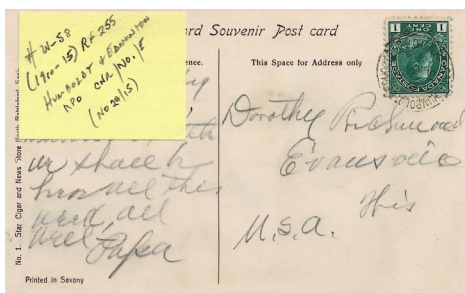 # W-58
(1910-15) RF 255
HUMBOLDT & EDMONTON
RPO CAR/NO.15
(NO 28/15)
ord Souvenir Post card
ence.
This Space for Address only
CANADA POSTAGE
1 ONE CENT 1
we shall h
all this
week, all
well
Papa
Dorothy Richmond
Evansville
Wis
U.S.A.
No. 1. Star Cigar and News Store
Printed in Saxony